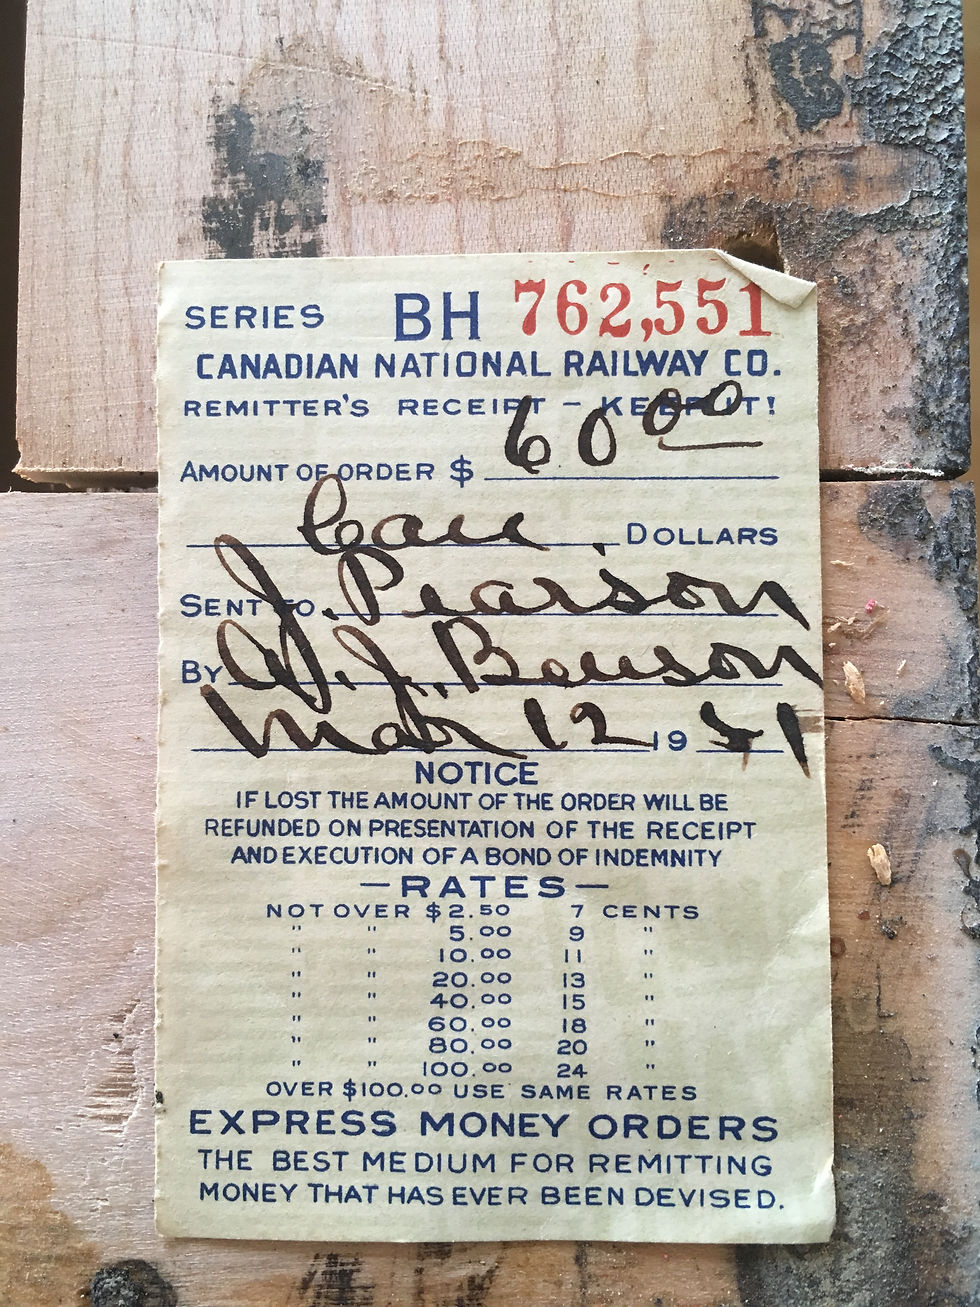 SERIES BH 762,551
CANADIAN NATIONAL RAILWAY CO.
REMITTER'S RECEIPT - KEEP IT!
AMOUNT OF ORDER $ 60 00
DOLLARS
SENT TO J. Pearson
BY J. Benson
Mar 12 19 51
NOTICE
IF LOST THE AMOUNT OF THE ORDER WILL BE
REFUNDED ON PRESENTATION OF THE RECEIPT
AND EXECUTION OF A BOND OF INDEMNITY
—RATES—
NOT OVER $2.50 7 CENTS
" " 5.00 9 "
" " 10.00 11 "
" " 20.00 13 "
" " 40.00 15 "
" " 60.00 18 "
" " 80.00 20 "
" " 100.00 24 "
OVER $100.00 USE SAME RATES
EXPRESS MONEY ORDERS
THE BEST MEDIUM FOR REMITTING
MONEY THAT HAS EVER BEEN DEVISED.